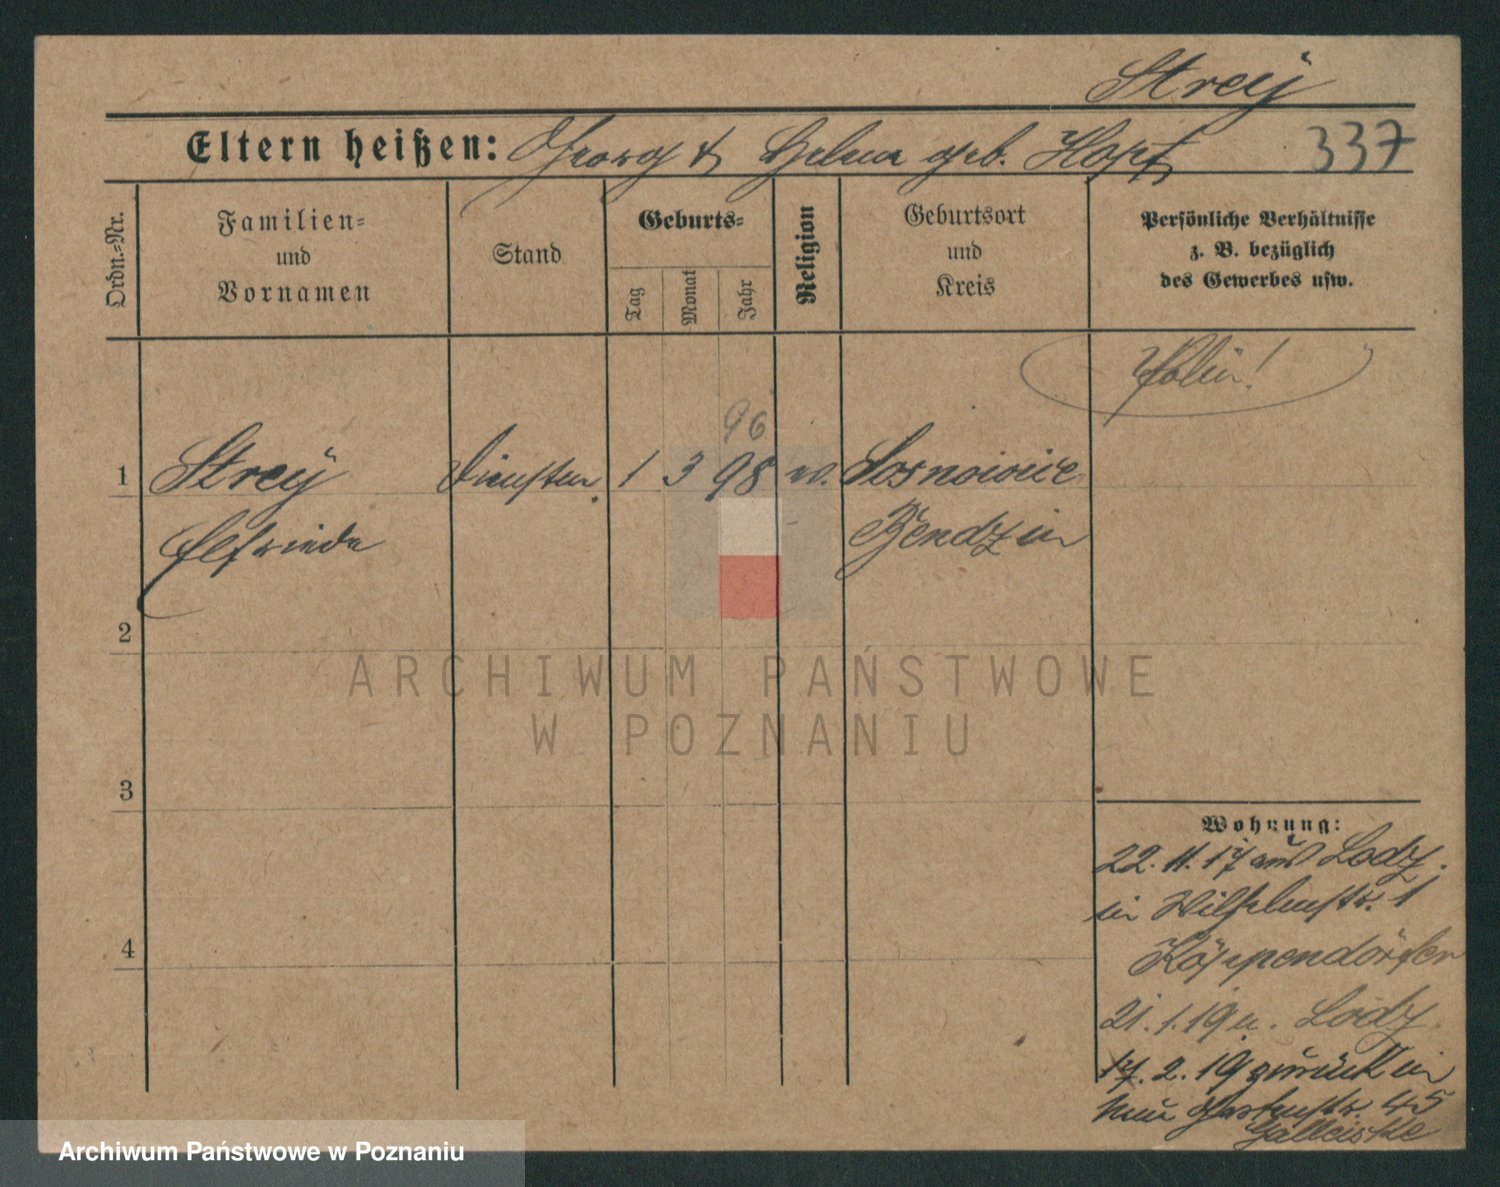 Strey
Eltern heißen: Georg & Helene geb. Hopf 337
Ordn.-Nr.
Familien-
und
Vornamen
Stand
Geburts-
Tag
Monat
Jahr
Religion
Geburtsort
und
Kreis
Persönliche Verhältnisse
z. B. bezüglich
des Gewerbes usw.
Polin!
96
1 Strey 1 3 98 ev. Sosnowice
Elfriede Bendzin
2
3
4
Wohnung:
22. 11. 17 aus Lodz.
in Wilhelmstr. 1
21. 1. 19 n. Lodz.
17. 2. 19 zurück in
Gartenstr. 45
ARCHIWUM PAŃSTWOWE
W POZNANIU
Archiwum Państwowe w Poznaniu